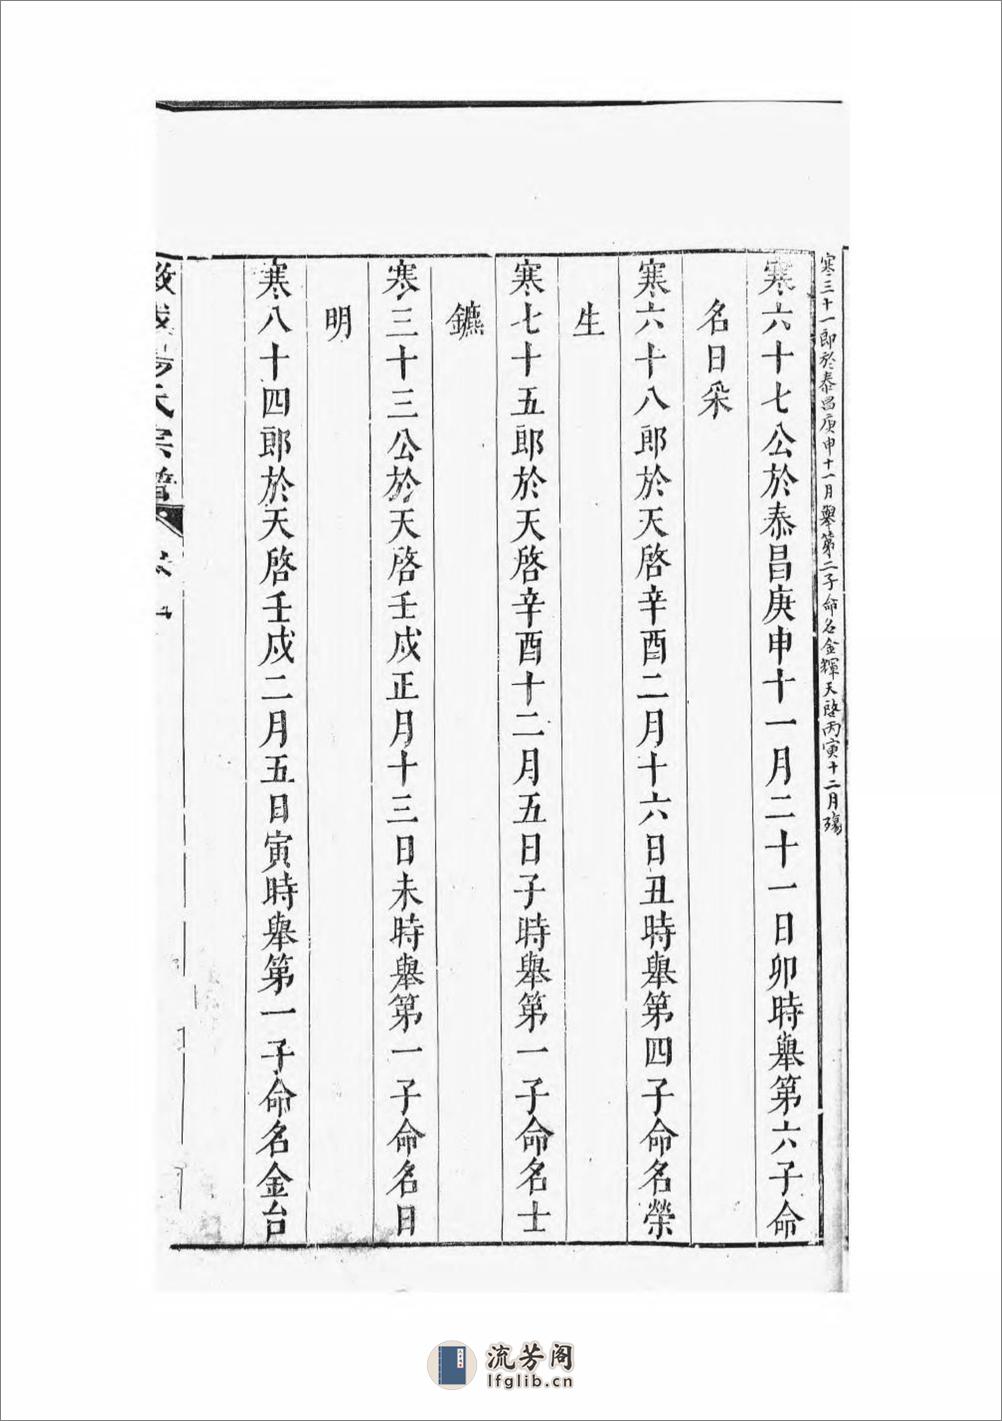 寒三十一郎於泰昌庚申十一月舉第二子命名金輝天啓丙寅十二月殤
寒六十七公於泰昌庚申十一月二十一日卯時舉第六子命
名日采
寒六十八郎於天啓辛酉二月十六日丑時舉第四子命名榮
生
寒七十五郎於天啓辛酉十二月五日子時舉第一子命名士
鑣
寒三十三公於天啓壬戌正月十三日未時舉第一子命名日
明
寒八十四郎於天啓壬戌二月五日寅時舉第一子命名金台
氏宗譜
流芳阁
lfglib.cn